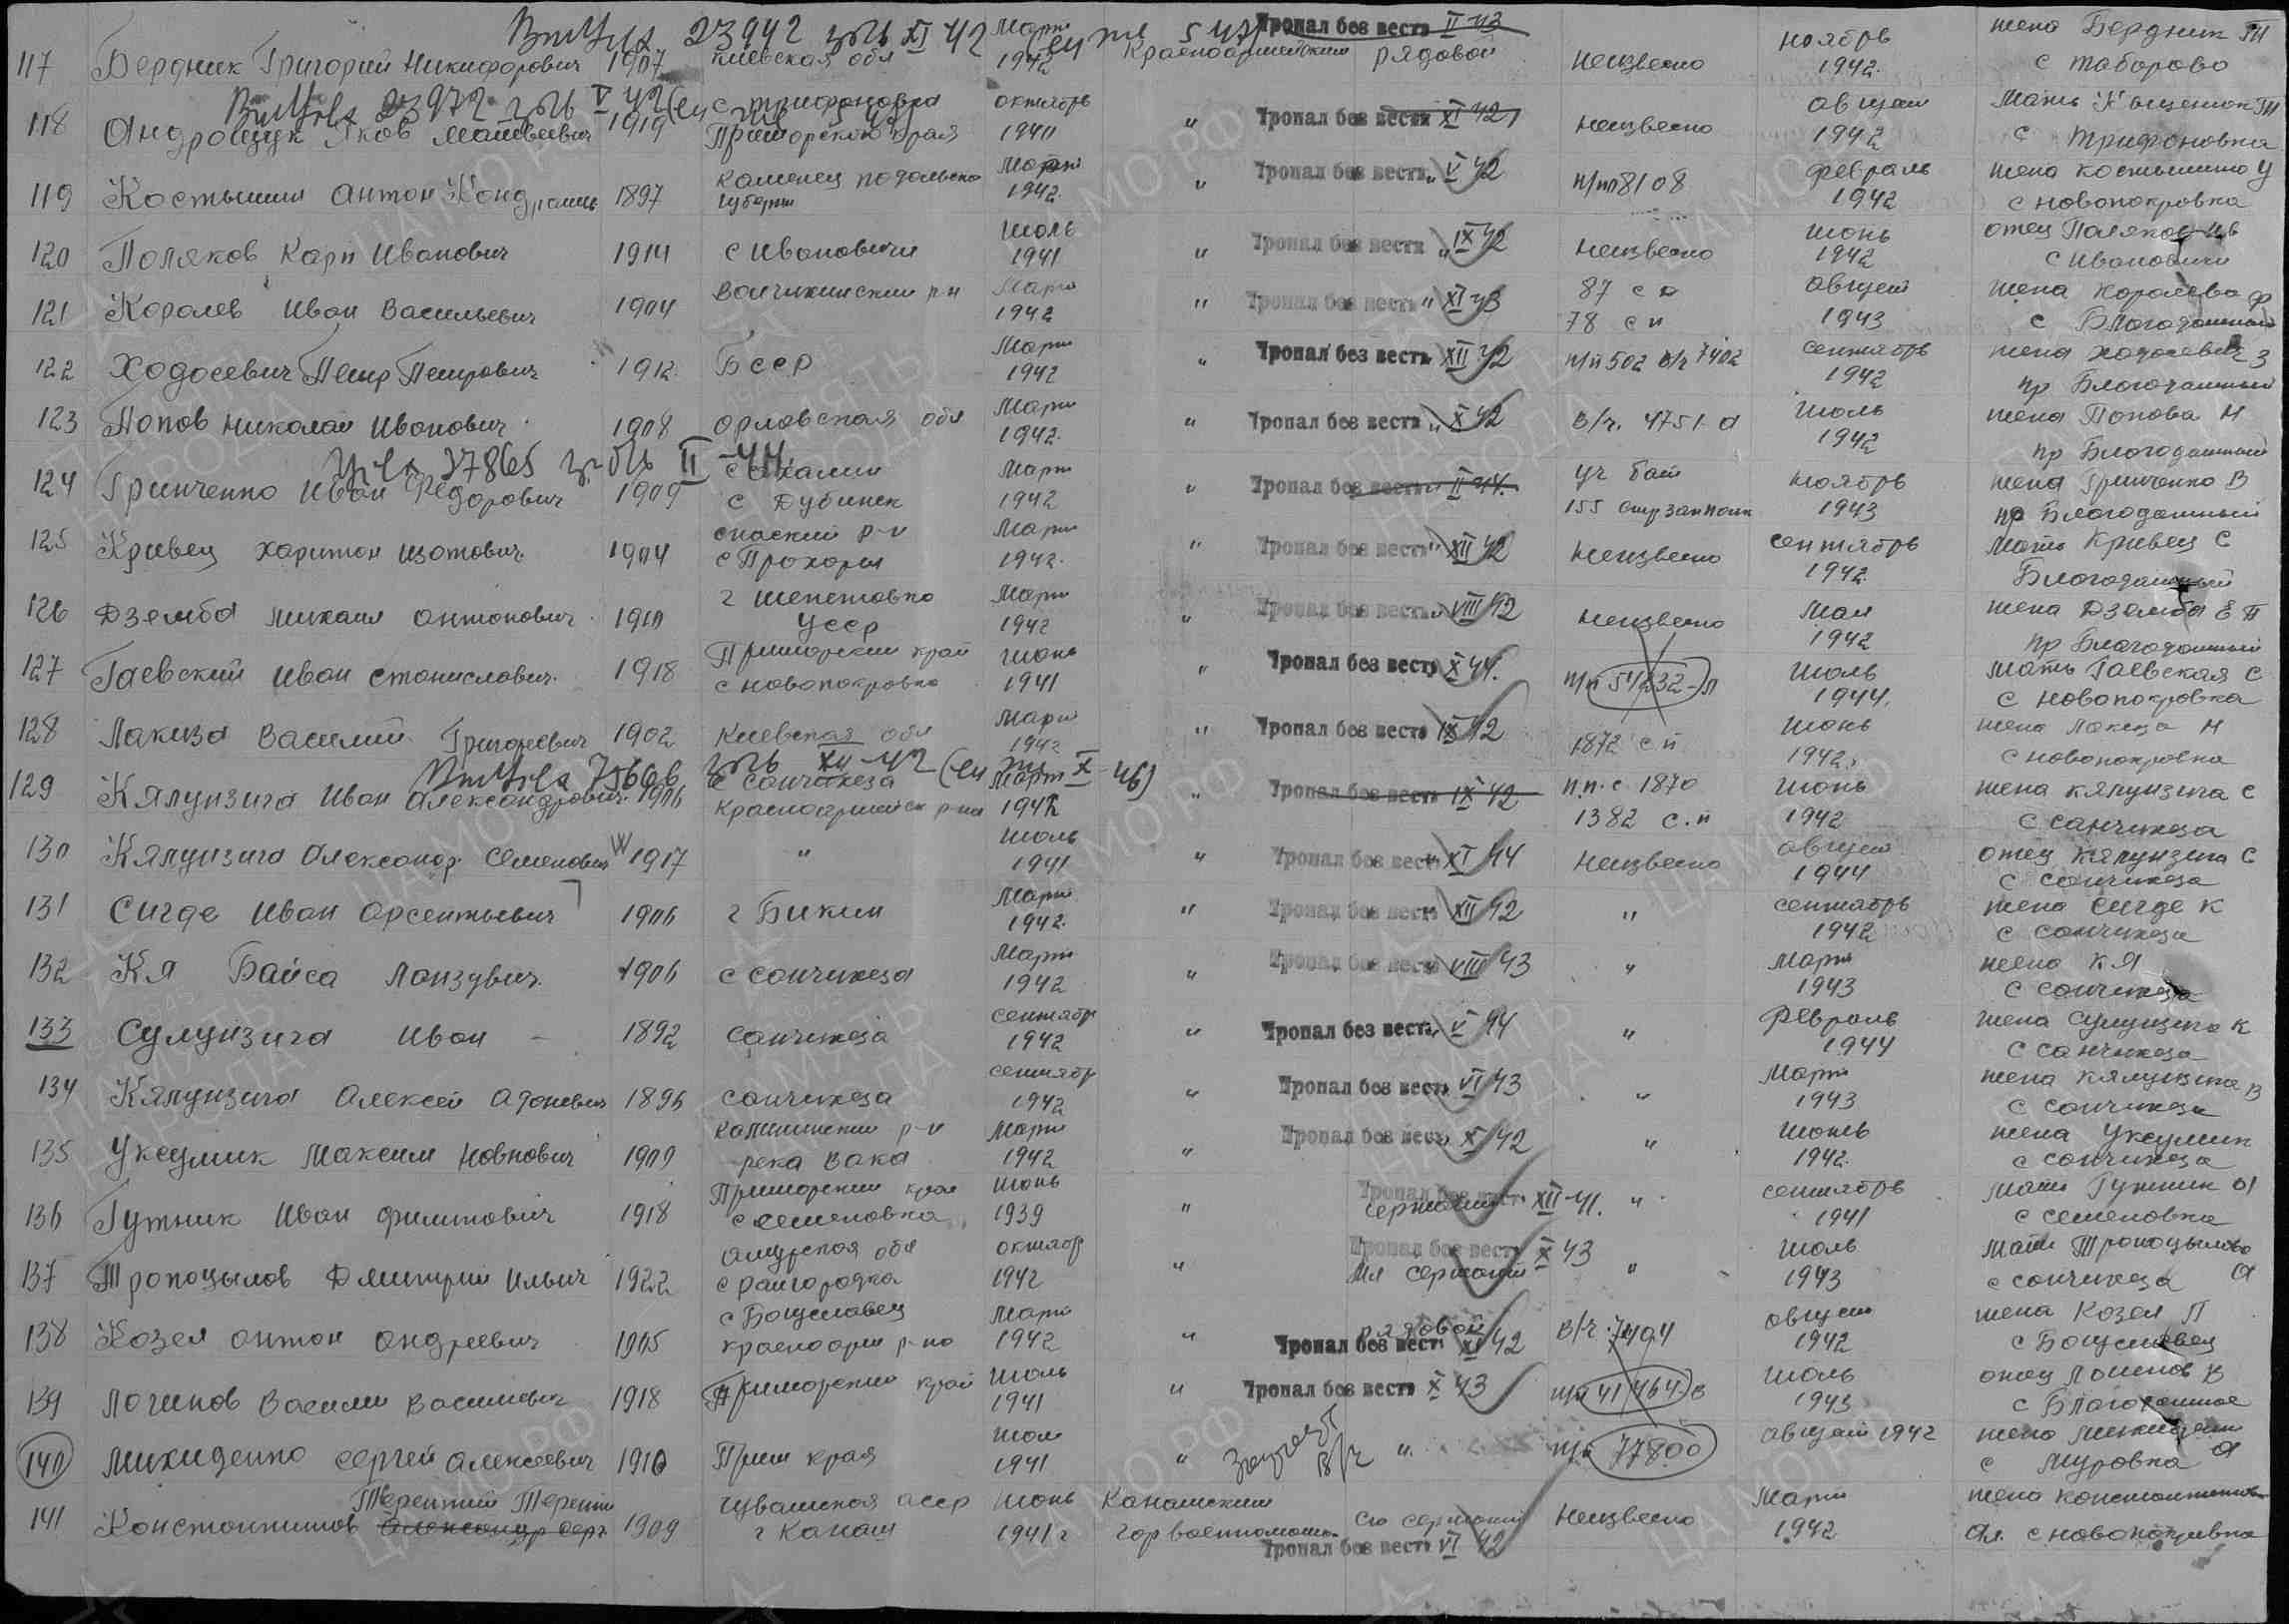 23942 XI 42
Март Пропал без вести II 43 ноябрь жена Бердник
117 Бердник Григорий Никифорович 1907 Киевская обл 1942 Красноармейским рядовой неизвестно 1942 с Таборово
23972 V 42
118 Андрощук Яков Матвеевич 1919 с Трифоновка Приморского края октябрь 1940 " Пропал без вести XI 42 неизвестно август 1942 мать
с Трифоновка
119 Костышин Антон 1897 Каменец подольско губерни Март 1942 " Пропал без вести V 42 п/п 8108 февраль 1942 жена Костышина У
с Новопокровка
120 Поляков Карп Иванович 1914 с Ивановичи Июль 1941 " Пропал без вести IX 42 неизвестно Июнь 1942 отец Поляков Ив
с Ивановичи
121 Королев Иван Васильевич 1904 р-н Март 1942 " Пропал без вести XI 43 87 сд
78 сп август 1943 жена Королева Ф
с Благодатный
122 Ходосевич Петр Петрович 1912 БССР Март 1942 " Пропал без вести XII 42 п/п 502 в/ч 7402 сентябрь 1942 жена Ходосевич З
пр Благодатный
123 Попов Николай Иванович 1908 Орловская обл Март 1942 " Пропал без вести X 42 в/ч. 4751-а Июль 1942 жена Попова Н
пр Благодатный
27865 II-44
124 Гринченко Иван Федорович 1909 Сахалин
с Дубинск Март 1942 " Пропал без вести II 44. уч бат
155 ноябрь 1943 жена Гринченко В
пр Благодатный
125 Кривец Харитон Изотович 1904 Спаский р-н
с Прохоры Март 1942 " Пропал без вести XII 42 неизвестно сентябрь 1942 мать Кривец С
Благодатный
126 Дзямба Михаил Антонович 1910 г Шепетовка
УССР Март 1942 " Пропал без вести VIII 42 неизвестно Май 1942 жена Дзямба Е П
пр Благодатный
127 Гаевский Иван Станиславович 1918 Приморский край
с Новопокровка Июнь 1941 " Пропал без вести X 44. п/п 54832-Л Июль 1944. мать Гаевская С
с Новопокровка
128 Лакиза Василий Григорьевич 1902 Киевская обл Март 1942 " Пропал без вести IX 42 1872 сп Июнь 1942 жена Лакиза Н
с Новопокровка
75666 XII-42 X-46)
129 Кялундзига Иван Александрович 1906 с Санчихеза
Красноармейск р-на Март 1942 " Пропал без вести IX 42 п.п.с. 1870
1382 с.п Июнь 1942 жена Кялундзига С
с Санчихеза
130 Кялундзига Александр Семенович 1917 " Июль 1941 " Пропал без вести XI 44 неизвестно август 1944 отец Кялундзига С
с Санчихеза
131 Сигде Иван Арсентьевич 1906 г Бикин Март 1942 " Пропал без вести XII 42 " сентябрь 1942 жена Сигде К
с Санчихеза
132 Кя Байса Ланзувич 1906 с Санчихеза Март 1942 " Пропал без вести VIII 43 " Март 1943 жена Кя
с Санчихеза
133 Сулунзига Иван - 1892 Санчихеза сентябр 1942 " Пропал без вести V 44 " Февраль 1944 жена Сулунзига К
с Санчихеза
134 Кялунзига Алексей 1896 Санчихеза сентябр 1942 " Пропал без вести VI 43 " Март 1943 жена Кялунзига В
с Санчихеза
135 Уксумик Максим 1909 Калининский р-н
река Вака Март 1942 " Пропал без вести X 42 " Июнь 1942 жена Уксумик
с Санчихеза
136 Гутник Иван Филиппович 1918 Приморский края
с Семеновка Июнь 1939 " Пропал без вести XII-41.
сержант " сентябрь 1941 мать Гутник А
с Семеновка
137 Дмитрий Ильич 1922 Амурская обл
с Райгородка октябр 1942 " Пропал без вести X 43
мл сержант " Июль 1943 мать
с Санчихеза А
138 Козел Антон Андреевич 1905 с Богуславец
красноарм р-на Март 1942 " рядовой
Пропал без вести XI 42 в/ч 7494 август 1942 жена Козел П
с Богуславец
139 Логинов Васили Васильевич 1918 Приморский край Июль 1941 " Пропал без вести X 43 п/п 41464 В Июль 1943 отец Логинов В
с Благодатное
140 Михиденко Сергей Алексеевич 1910 Прим края Июл 1941 " " п/п 77800 август 1942 жена
с Муровка А
141 Константинов Терентий 1909 Чувашская АССР
г Канаш Июнь 1941 г Канашским
Ст сержант
Пропал без вести VI 42 неизвестно Март 1942 жена
с Новопокровка